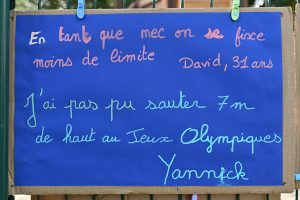 En tant que mec on se fixe
moins de limite David, 31 ans
J'ai pas pu sauter 7m
de haut au Jeux Olympiques
Yannick